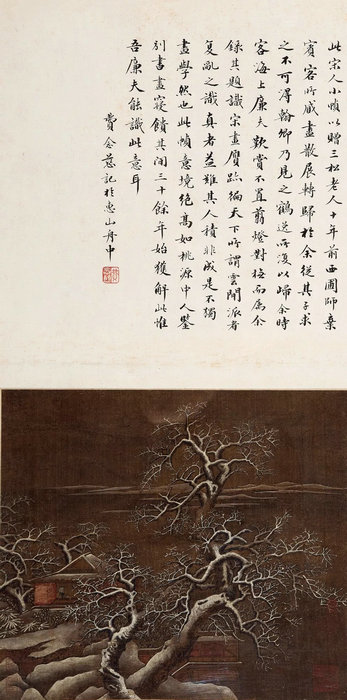 此宋人小幀以贈三松老人十年前西圃師棄
賓客所威畫散展轉歸於余從其子求
之不可淂翰卿乃見之鶴逆而復以歸余時
客海上廉夫歎賞不置翦燈對橅而屬余
録其題識宋畫贗跡徧天下所謂雲間派者
复亂之識真者益難其人積非成是不獨
畫學然也此幀意境絶高如桃源中人鑒
别書畫寢饋其間三十餘年始獲解此惟
吾廉夫能識此意耳
費念慈記於惠山舟中